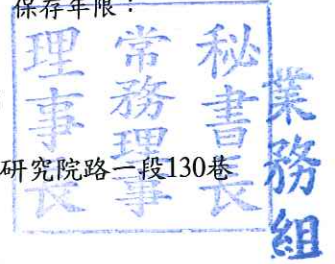 保存年限：
理事長
常務理事
秘書長
業務組
研究院路一段130巷